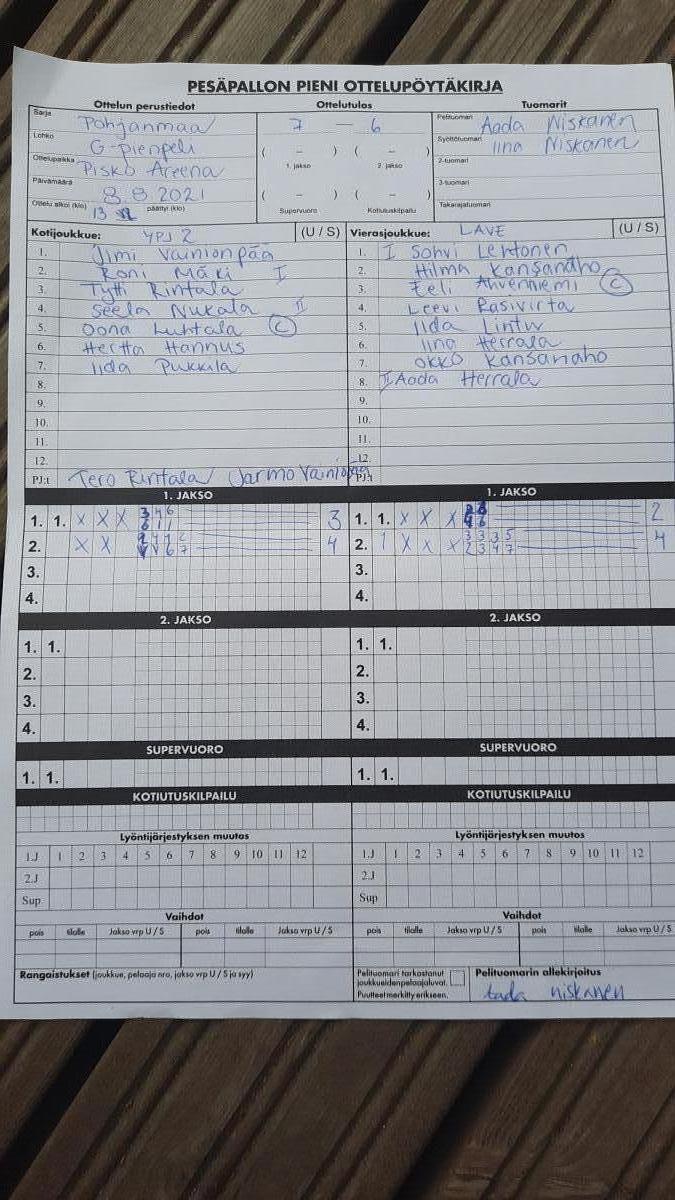 PESÄPALLON PIENI OTTELUPÖYTÄKIRJA
Ottelun perustiedot Ottelutulos Tuomarit
Sarja Pohjanmaa 7 — 6 Pelituomari Aada Niskanen
Lohko G-pienpeli Syöttötuomari Iina Niskanen
Ottelupaikka Pisko Areena ( – ) ( – ) 2-tuomari
1. jakso 2. jakso
Päivämäärä 8.8.2021 ( – ) ( – ) 3-tuomari
Ottelu alkoi (klo) 13 päättyi (klo) Supervuoro Kotiutuskilpailu Takarajatuomari
Kotijoukkue: YPJ 2 (U / S) Vierasjoukkue: LAVE (U / S)
1. Jimi Vainionpää 1. I Sohvi Lehtonen
2. Roni Mäki I 2. Hilma Kansanaho
3. Tytti Rintala 3. Eeli Ahvenniemi C
4. Seela Nukala II 4. Leevi Rasivirta
5. Oona Luhtala C 5. Iida Lintu
6. Hertta Hannus 6. Iina Herrala
7. Iida Pukkila 7. Okko Kansanaho
8. 8. II Aada Herrala
9. 9.
10. 10.
11. 11.
12. 12.
PJ:t Tero Rintala / Jarmo Vainionpää PJ:t
1. JAKSO 1. JAKSO
1. 1. X X X 3 4 6 3 1. 1. X X X 2
6 1 1
2. X X 4 2. 1 X X X 3 3 3 5 4
6 7 2 3 4 7
3. 3.
4. 4.
2. JAKSO 2. JAKSO
1. 1. 1. 1.
2. 2.
3. 3.
4. 4.
SUPERVUORO SUPERVUORO
1. 1. 1. 1.
KOTIUTUSKILPAILU KOTIUTUSKILPAILU
Lyöntijärjestyksen muutos Lyöntijärjestyksen muutos
1.J 1 2 3 4 5 6 7 8 9 10 11 12 1.J 1 2 3 4 5 6 7 8 9 10 11 12
2.J 2.J
Sup Sup
Vaihdot Vaihdot
pois tilalle Jakso vrp U / S pois tilalle Jakso vrp U / S pois tilalle Jakso vrp U / S pois tilalle Jakso vrp U / S
Rangaistukset (joukkue, pelaaja nro, jakso vrp U / S ja syy) Pelituomari tarkastanut Pelituomarin allekirjoitus
joukkueiden pelaajaluvat.
Puutteet merkitty erikseen. niskanen